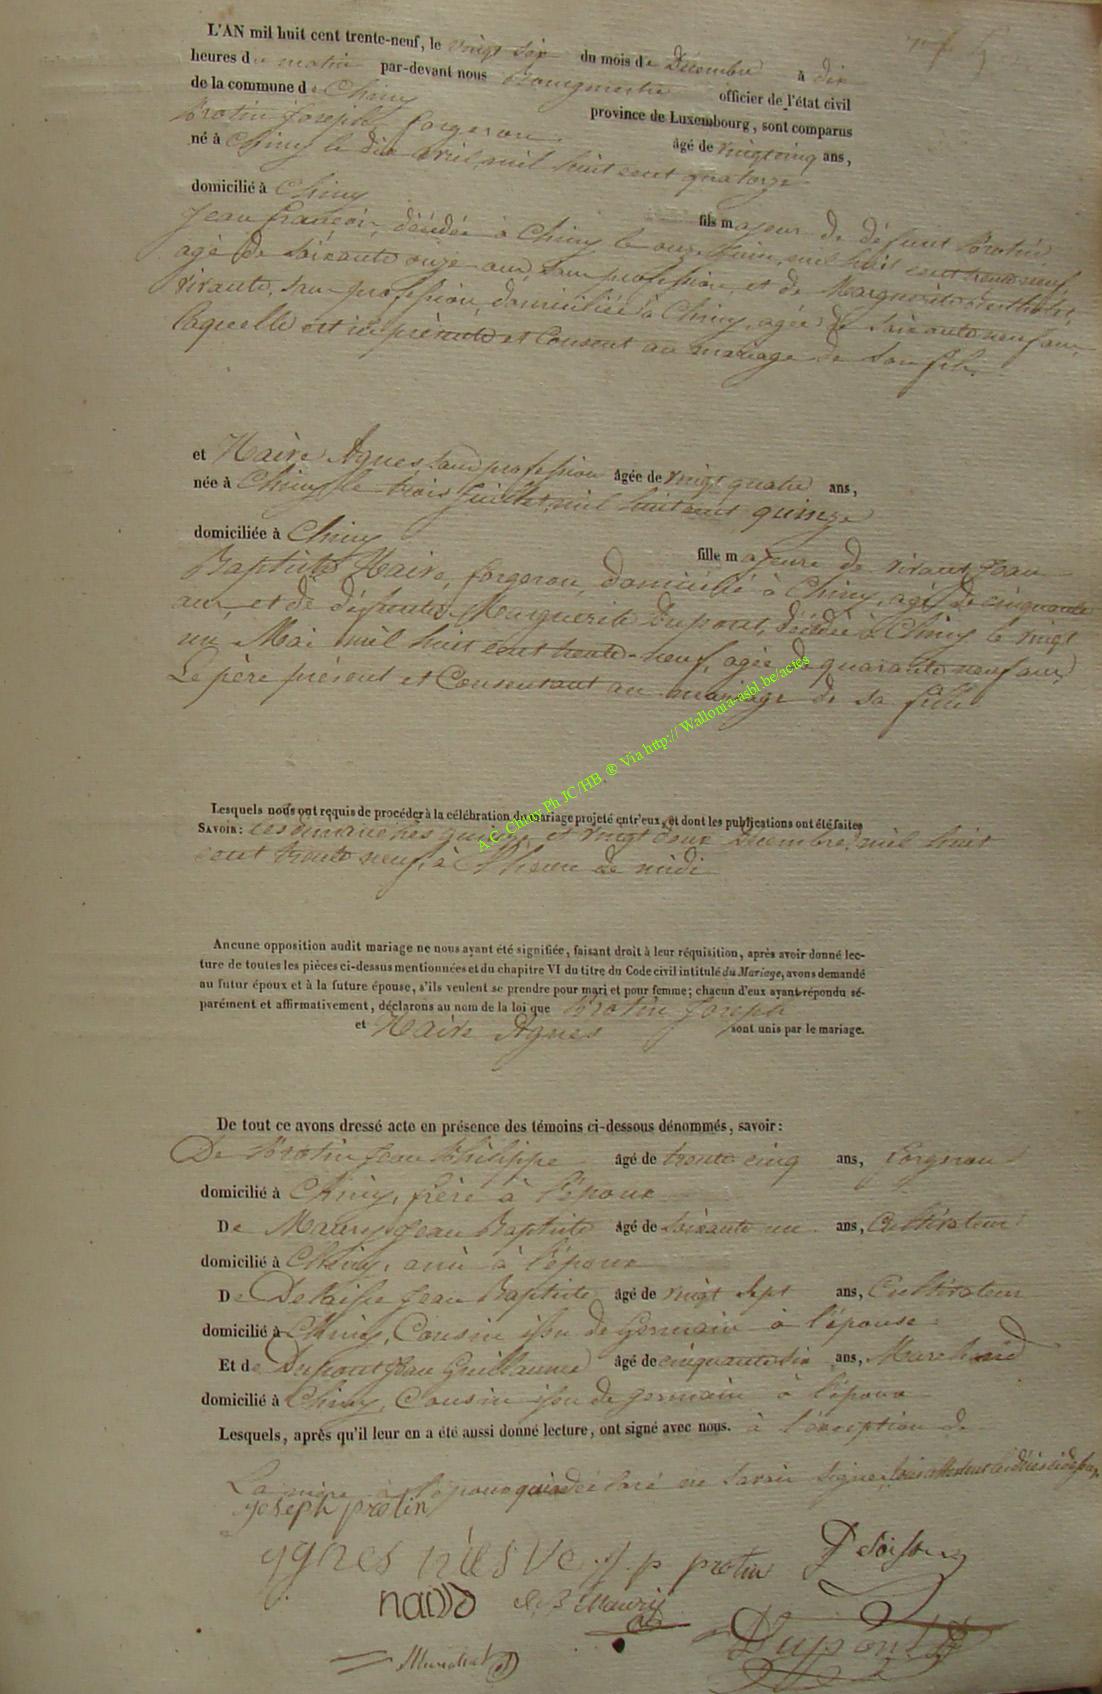 L'AN mil huit cent trente-neuf, le vingt six du mois de Décembre à dix
heures du matin par-devant nous Bourgmestre officier de l'état civil
de la commune de Chiny province de Luxembourg, sont comparus
Protin Joseph forgeron âgé de vingt cinq ans,
né à Chiny le dix avril mil huit cent quatorze
domicilié à Chiny fils majeur de défunt Protin
Jean françois, décédé à Chiny le onze Juin mil huit cent trente neuf,
agé de soixante onze ans, sans profession, et de Marguerite
vivante, sans profession, domiciliée à Chiny, agée de soixante neuf ans,
laquelle est ici présente et Consent au mariage de son fils.
et Naive Agnes sans profession âgée de vingt quatre ans,
née à Chiny le trois Juillet mil huit cent quinze
domiciliée à Chiny fille majeure de vivant Jean
Baptiste Naive, forgeron, domicilié à Chiny, agé de cinquante
ans, et de défunte Marguerite Dupont, décédée à Chiny le vingt
un Mai mil huit cent trente-neuf, agée de quarante neuf ans,
Le père présent et Consentant au mariage de sa fille
Lesquels nous ont requis de procéder à la célébration du mariage projeté entr'eux, et dont les publications ont été faites
SAVOIR: les dimanches quinze et vingt deux Décembre, mil huit
cent trente neuf, à l'heure de midi
Aucune opposition audit mariage ne nous ayant été signifiée, faisant droit à leur réquisition, après avoir donné lec-
ture de toutes les pièces ci-dessus mentionnées et du chapitre VI du titre du Code civil intitulé du Mariage, avons demandé
au futur époux et à la future épouse, s'ils veulent se prendre pour mari et pour femme; chacun d'eux ayant répondu sé-
parément et affirmativement, déclarons au nom de la loi que Protin Joseph
et Naive Agnes sont unis par le mariage.
De tout ce avons dressé acte en présence des témoins ci-dessous dénommés, savoir:
De Protin Jean Philippe âgé de trente cinq ans, forgeron
domicilié à Chiny, frère à l'époux
De Maury Jean Baptiste âgé de soixante un ans, Cultivateur
domicilié à Chiny, ami à l'époux
De Jean Baptiste âgé de vingt sept ans, Cultivateur
domicilié à Chiny, Cousin issu de Germain à l'épouse
Et de Dupont Jean Guillaume âgé de cinquante six ans, Marchand
domicilié à Chiny, Cousin issu de germain à l'époux
Lesquels, après qu'il leur en a été aussi donné lecture, ont signé avec nous. à l'exception de
La mère à l'époux qui a déclaré ne savoir signer
joseph protin
j. p protin
Maury
Dupont
A.C. Chiny Ph JC/HB ® Via http:// Wallonia-asbl.be/actes